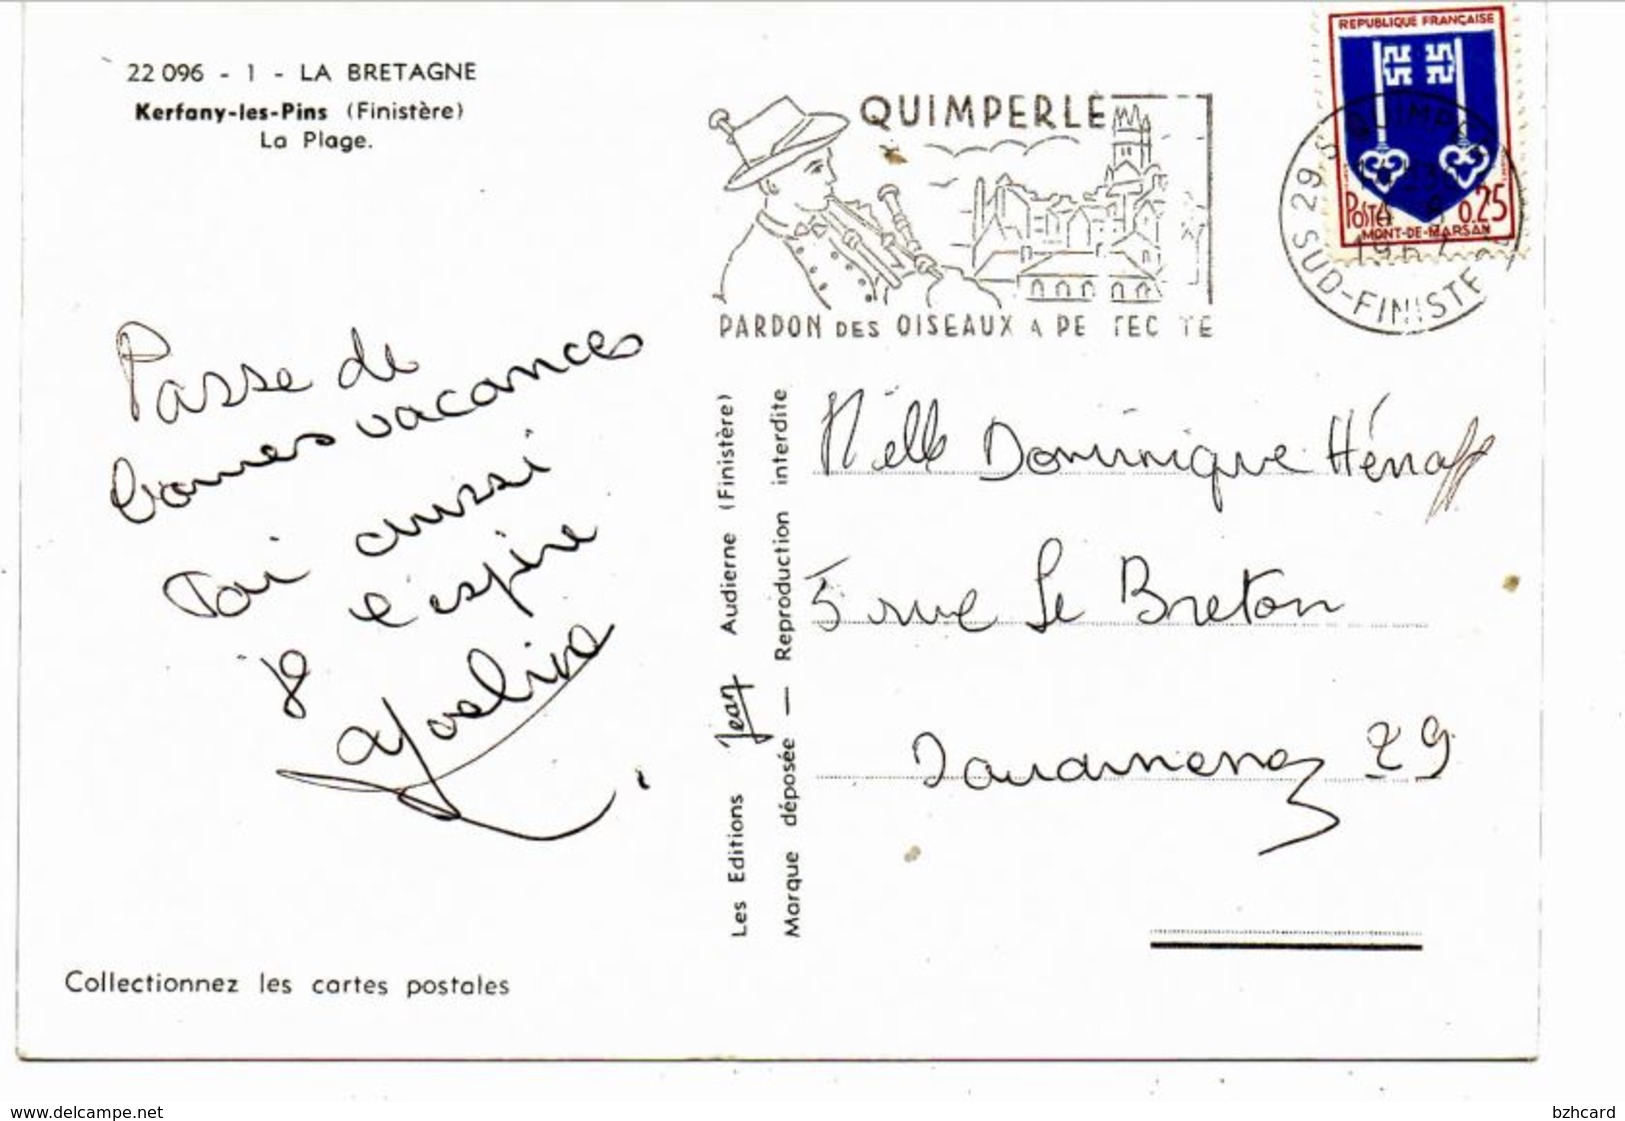 22 096 - 1 - LA BRETAGNE
Kerfany-les-Pins (Finistère)
La Plage.
QUIMPERLÉ
PARDON DES OISEAUX A PE TEC TE
REPUBLIQUE FRANÇAISE
POSTES 0.25
MONT-DE-MARSAN
29 S QUIMPE
S SUD-FINISTE
Passe de
bonnes vacances
Toi aussi
Je l'espère
Les Editions Jean Audierne (Finistère)
Marque déposée — Reproduction interdite
Melle Dominique Hénaff
5 rue Le Breton
Douarnenez 29
Collectionnez les cartes postales
www.delcampe.net
bzhcard